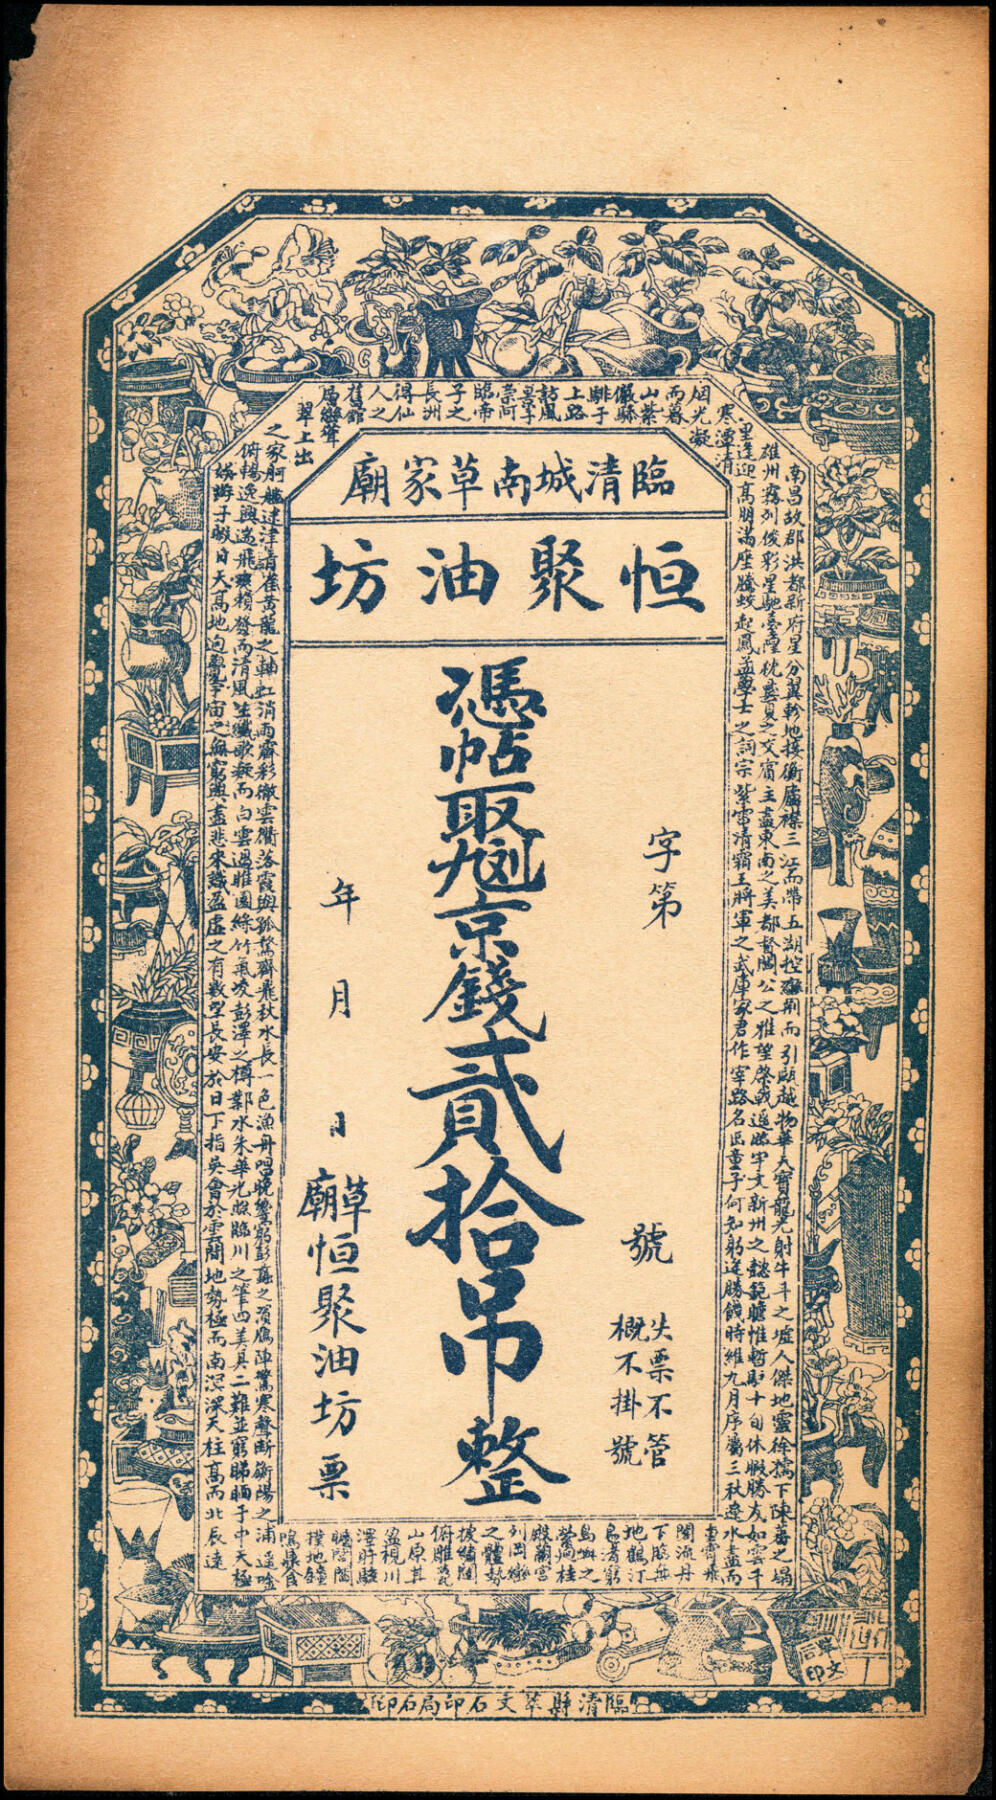 臨清城南草家廟
恒聚油坊
字第 號
失票不管
概不掛號
憑帖取 京錢貳拾吊整
年 月 日 草廟恒聚油坊票
南昌故郡洪都新府星分翼軫地接衡廬襟三江而帶五湖控蠻荊而引甌越物華天寶龍光射牛斗之墟人傑地靈徐孺下陳蕃之榻
雄州霧列俊彩星馳臺隍枕夷夏之交賓主盡東南之美都督閻公之雅望棨戟遙臨宇文新州之懿範襜惟暫駐十旬休暇勝友如雲千
里逢迎高朋滿座騰蛟起鳳孟學士之詞宗紫電清霜王將軍之武庫家君作宰路名區童子何知躬逢勝餞時維九月序屬三秋潦水盡而
寒潭清
烟光凝
而暮
山紫
儼驂
騑于
上路
訪風
景于
崇阿
臨帝
子之
長洲
得仙
人之
舊館
層巒聳
翠上出
重霄飛
閣流丹
下臨無
地鶴汀
鳧渚窮
島嶼之
縈迴桂
殿蘭宮
列岡巒
之體勢
披繡闥
俯雕甍
山原其
盈視川
澤盱駭
矚閭閻
撲地鐘
鳴鼎食
之家舸艦迷津青雀黃龍之軸虹消雨霽彩徹雲衢落霞與孤鶩齊飛秋水長一色漁舟唱晚響窮彭蠡之濱雁陣驚寒聲斷衡陽之浦遙吟
俯暢逸興遄飛爽籟發而清風生纖歌凝而白雲遏睢園綠竹氣凌彭澤之樽鄴水朱華光照臨川之筆四美具二難並窮睇眄于中天極
娛遊于暇日天高地迥覺宇宙之無窮興盡悲來識盈虛之有數望長安於日下指吳會於雲間地勢極而南溟深天柱高而北辰遠
臨清縣萃文石印局石印